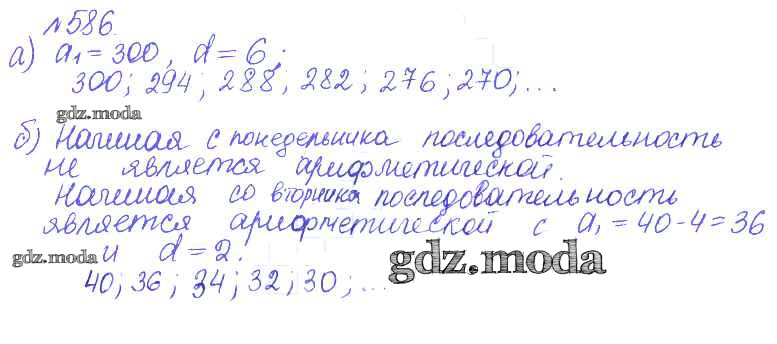 №586.
а) a₁ = 300, d = 6;
300; 294; 288; 282; 276; 270; ...
gdz.moda
б) Начиная с понедельника последовательность
не является арифметической.
Начиная со вторника последовательность
является арифметической с a₁ = 40 - 4 = 36
gdz.moda и d = 2.
gdz.moda
40; 36; 34; 32; 30; ...